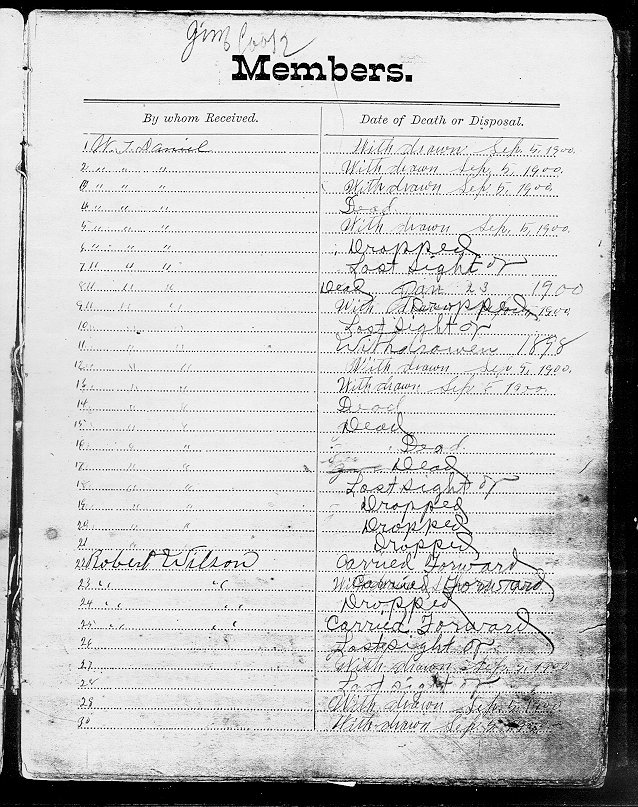 Jim Cook
Members.
By whom Received. Date of Death or Disposal.
1 W. T. Daniel Withdrawn Sep. 5, 1900.
2 " " " Withdrawn Sep. 5, 1900.
3 " " " Withdrawn Sep 5, 1900
4 " " " Dead
5 " " " Withdrawn Sep. 5, 1900.
6 " " " Dropped
7 " " " Last Sight of
8 " " Dead Jan 23 1900
9 " " " With Dropped 1900
10 " Last Sight of
11 " " Withdrowen 1898
12 " " Withdrawn Sep 5, 1900.
13 " " Withdrawn Sep 5 1900.
14 " " Dead
15 " " Dead
16 " " Dead
17 " " Dead
18 " " Last Sight of
19 " " Dropped
20 " " Dropped
21 " Dropped
22 Robert Wilson Carried Forward
23 " " Carried Forward
24 " " Dropped
25 " " Carried Forward
26 Last Sight of
27 Withdrawn Sep. 5, 1900
28 Last Sight of
29 Withdrawn Sep. 5, 1900
30 Withdrawn Sep. 5, 1900